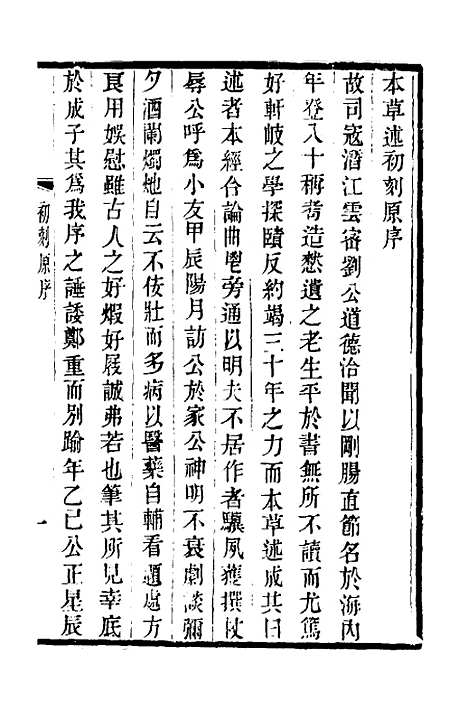 本草述初刻原序
故司寇潛江雲密劉公道德洽聞以剛腸直節名於海內
年登八十稱耆造憗遺之老生平於書無所不讀而尤篤
好軒岐之學探賾反約竭三十年之力而本草述成其曰
述者本經合論曲鬯旁通以明夫不居作者驥夙獲撰杖
辱公呼爲小友甲辰陽月訪公於家公神明不衰劇談彌
夕酒闌燭灺自云不佞壯而多病以醫藥自輔看題處方
良用娛慰雖古人之好煆好屐誠弗若也筆其所見幸底
於成子其爲我序之諈諉鄭重而別踰年乙巳公正星辰
初刻原序
一